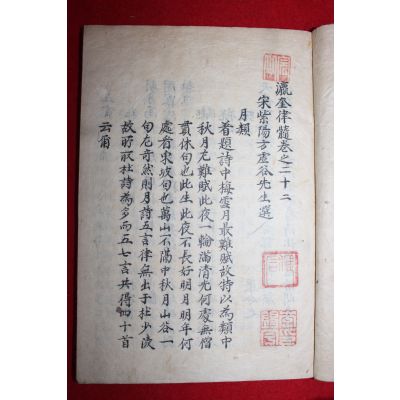 瀛奎律髓卷之二十二
宋紫陽方虛谷先生選
月類
着題詩中梅雪月最難賦故特以為類中
秋月尤難賦此夜一輪滿清光何處無僧
貫休句也此生此夜不長好明月明年何
處看東坡句也萬山不隔中秋月山谷一
句尤奇然則月詩五言律無出于杜少陵
故所取杜詩為多而五七言共得四十首
云爾